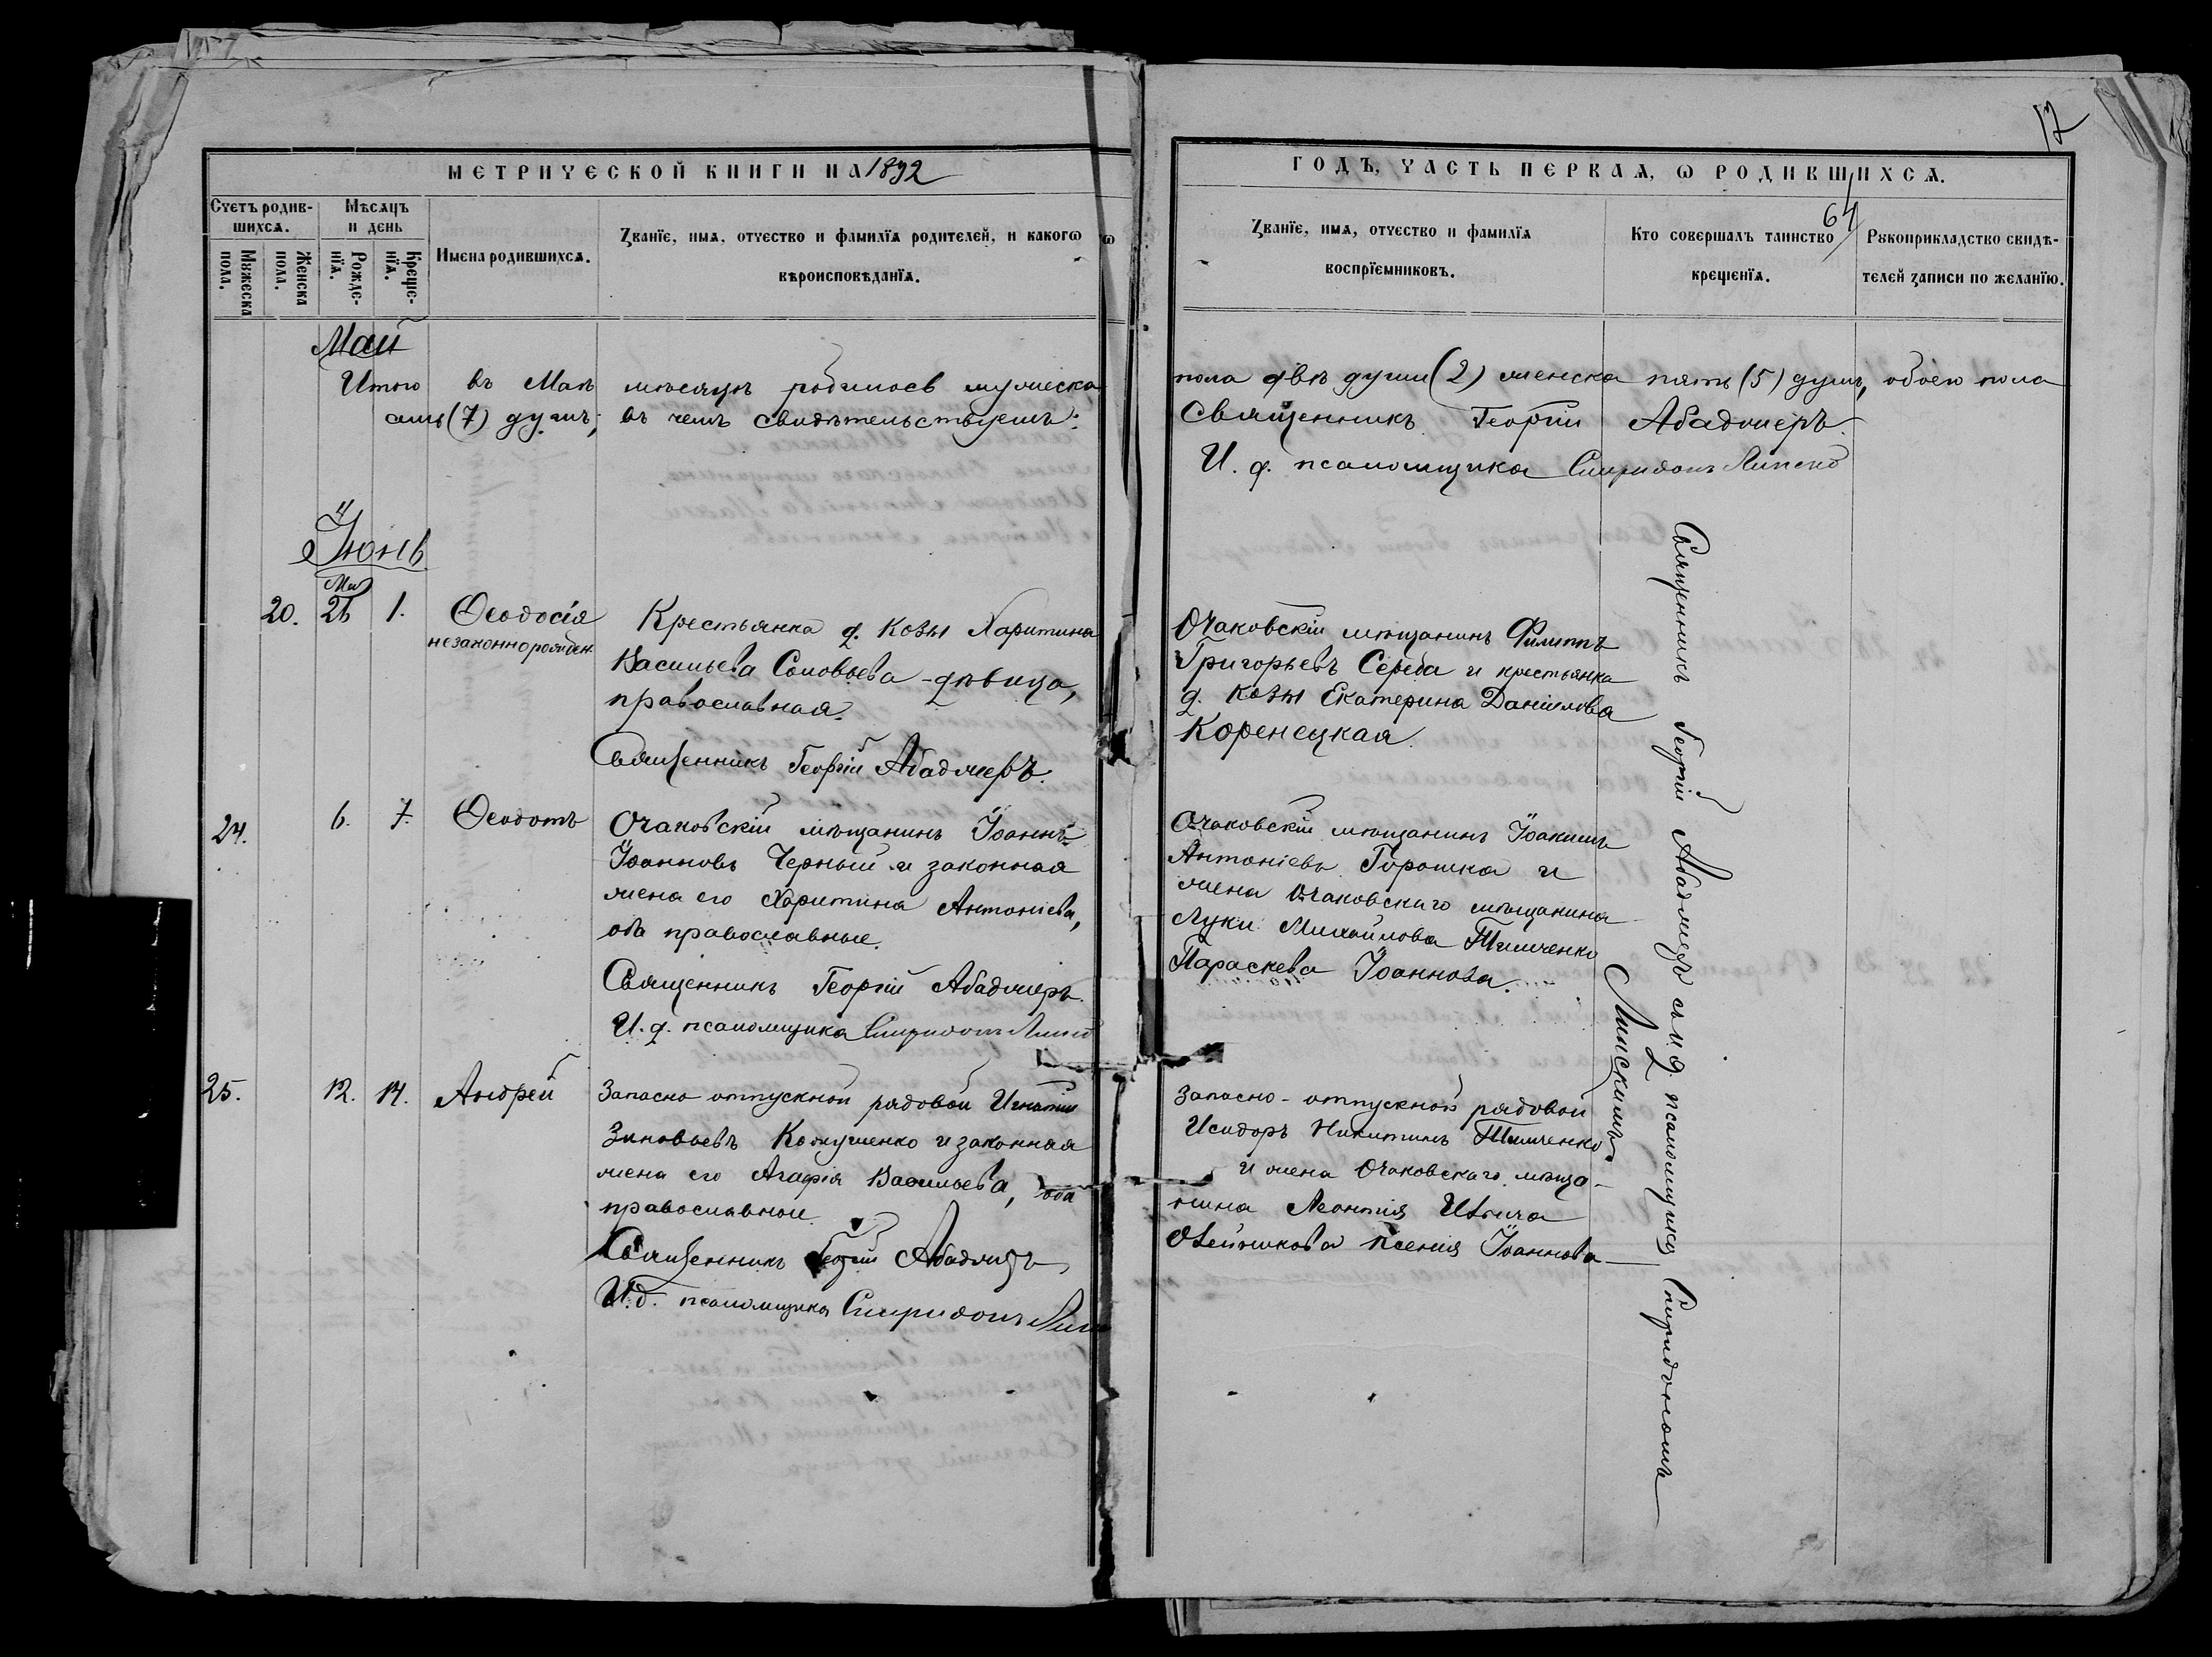 17
МЕТРИЧЕСКОЙ КНИГИ НА 1892
ГОДЪ, ЧАСТЬ ПЕРВАѦ, Ѡ РОДИВШИХСѦ.
64
Счетъ родив-
шихсѧ.
Мѹжеска
пола.
Женска
пола.
Мѣсѧцъ
и день
Рожде-
нїѧ.
Креще-
нїѧ.
Имена родившихсѧ.
Ꙁванїе, имѧ, отчество и фамилїѧ родителей, и какогѡ
вѣроисповѣданїѧ.
Ꙁванїе, имѧ, отчество и фамилїѧ
воспрїемниковъ.
Кто совершалъ таинство
крещенїѧ.
Рѹкоприкладство свидѣ-
телей ꙁаписи по желанїю.
Май
Итого въ Маѣ мѣсяцѣ родилось мужеска пола двѣ души (2) женска пять (5) душъ, обоего пола
семь (7) душъ; въ чемъ свидѣтельствуемъ: Священникъ Георгій Абаджеръ
И. д. псаломщика Спиридонъ Липскій
Іюнь
20. Май 26 1. Ѳеодосія
незаконнорожден.
Крестьянка д. Козы Харитина
Васильева Соловьева - дѣвица,
православная.
Священникъ Георгій Абаджеръ.
Очаковскій мѣщанинъ Филиппъ
Григорьевъ Середа и крестьянка
д. Козы Екатерина Даніилова
Коренецкая.
24. 6. 7. Ѳеодотъ
Очаковскій мѣщанинъ Іоаннъ
Іоанновъ Черный и законная
жена его Харитина Антоніева,
оба православные.
Священникъ Георгій Абаджеръ.
И. д. псаломщика Спиридонъ
Очаковскій мѣщанинъ Іоакимъ
Антоніевъ Горошка и
жена Очаковскаго мѣщанина
Луки Михайлова Тимченко
Параскева Іоаннова.
25. 12. 14. Андрей
Запасно отпускной рядовой Игнатій
Зиновьевъ Кожушенко и законная
жена его Агафія Васильева, оба
православные.
Священникъ Георгій Абаджеръ
И. д. псаломщика Спиридонъ
Запасно-отпускной рядовой
Исидоръ Никитинъ Тимченко
и жена Очаковскаго мѣща-
нина Леонтія Ильича
Ксенія Іоаннова
Священникъ Георгій Абаджеръ съ и д. псаломщика Спиридономъ
Липскимъ.